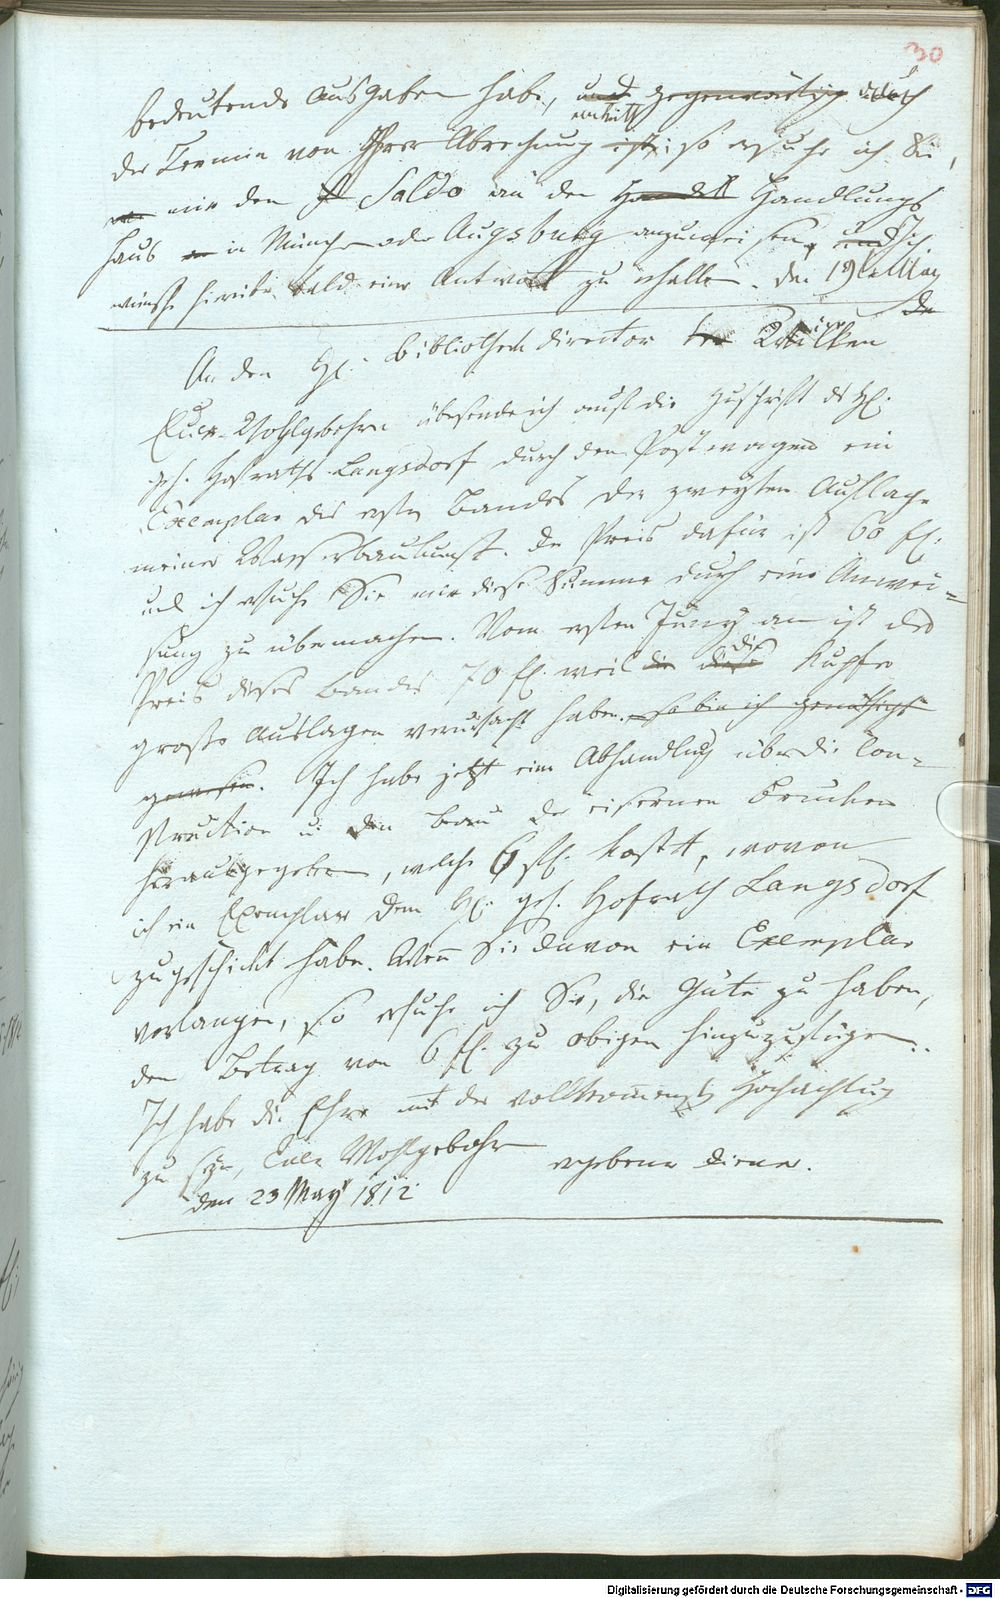 30
bedeutende Ausgaben habe, und gegenwärtig auch
eintritt
der Termin von Ihrer Abrechnung ist; so ersuche ich Sie,
mir den Saldo an den Handlungs
Haus in München oder Augsburg anzuweisen, und Ich
wünsche hierüber bald eine Antwort zu erhalten. Den 19 May
An den H. Bibliothek director Wilken
Euer Wohlgebohrn übersende ich auf die Zuschrift des H.
geh. Hofraths Langsdorf durch den Postwagen ein
Exemplar des ersten Bandes der zweyten Auflage
meiner Wasserbaukunst. Der Preis dafür ist 60 fl.
und ich ersuche Sie mir diese Summe durch eine Anwei=
sung zu übermachen. Vom ersten Juny an ist der
Preis dieses Bandes 70 fl. weil die diese die Kupfer
große Auslagen verursacht haben. so bin ich genöthigt
gewesen. Ich habe jetzt eine Abhandlung über die Con=
struction u: den Bau der eisernen Brucken
herausgegeben, welche 6 fl. kostet, wovon
ich ein Exemplar dem H. geh. Hofrath Langsdorf
zugeschickt habe. Wenn Sie davon ein Exemplar
verlangen, so ersuche ich Sie, die Güte zu haben,
den Betrag von 6 fl. zu obigen hinzuzufügen.
Ich habe die Ehre mit der vollkommensten Hochachtung
zu seyn, Euer Wohlgebohrn
ergebener Diener.
den 23 May 1812
Digitalisierung gefördert durch die Deutsche Forschungsgemeinschaft - DFG